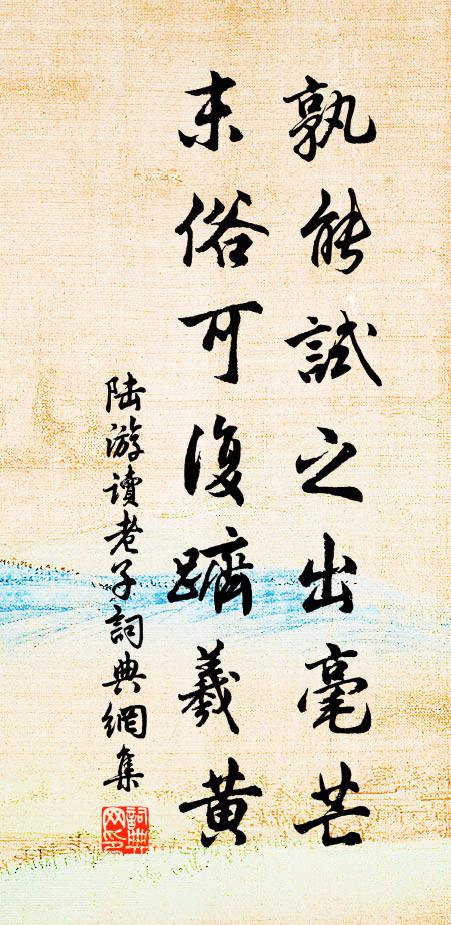 孰能試之出毫芒
末俗可復躋羲黃
陸游讀老子詞典網集
詞典网印